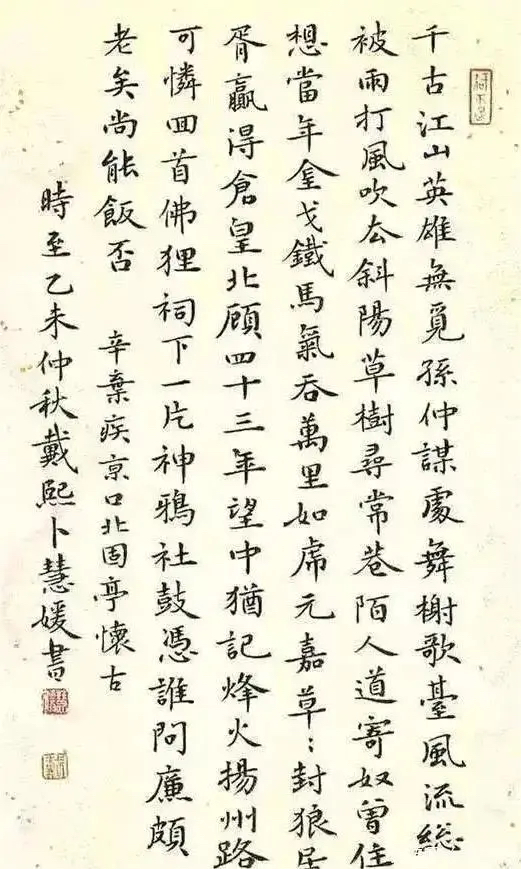 千古江山英雄無覓孫仲謀處舞榭歌臺風流総
被雨打風吹去斜陽草樹尋常巷陌人道寄奴曾住
想當年金戈鐵馬氣吞萬里如虎元嘉草〻封狼居
胥贏得倉皇北顧四十三年望中猶記烽火揚州路
可憐回首佛狸祠下一片神鴉社鼓憑誰問廉頗
老矣尚能飯否 辛棄疾京口北固亭懷古
時至乙未仲秋戴熙卜慧媛書